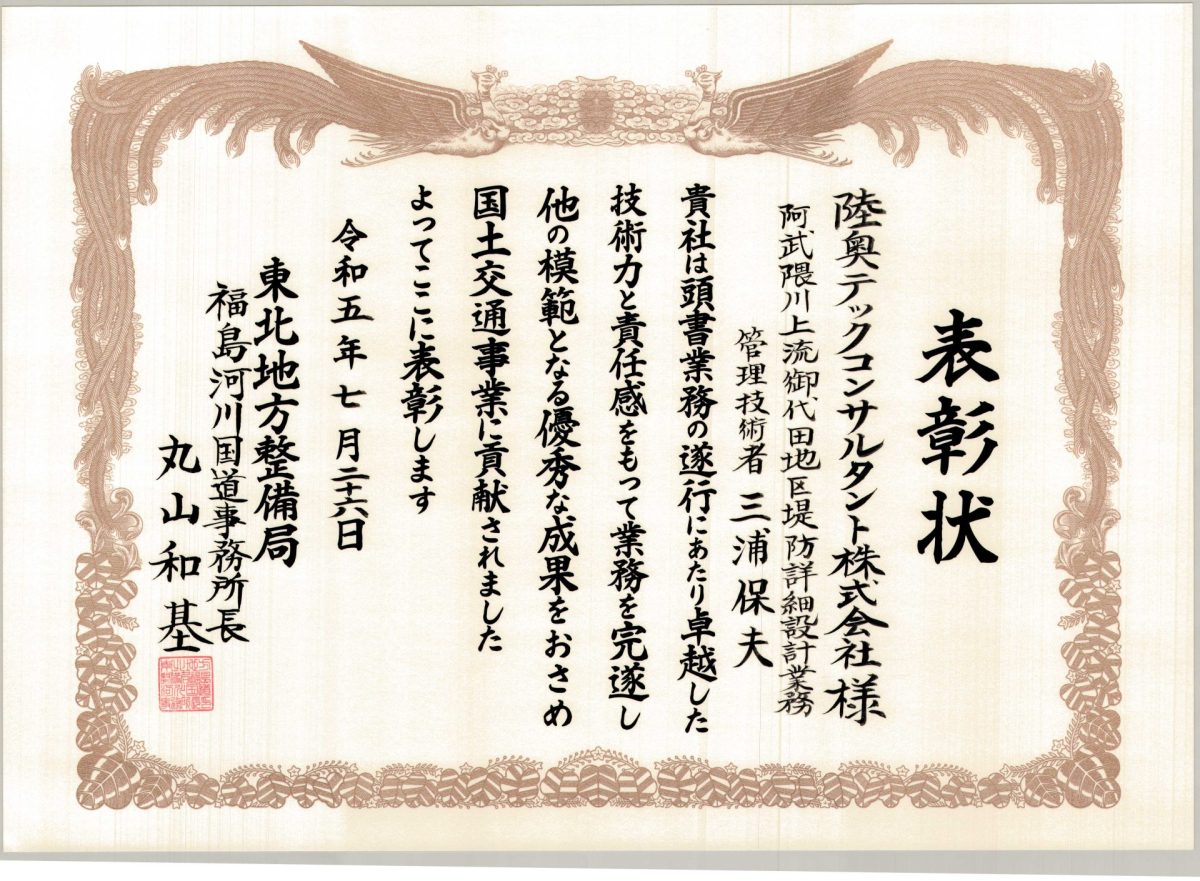 表彰状
陸奥テックコンサルタント株式会社様
阿武隈川上流御代田地区堤防詳細設計業務
管理技術者 三浦保夫
貴社は頭書業務の遂行にあたり卓越した
技術力と責任感をもって業務を完遂し
他の模範となる優秀な成果をおさめ
国土交通事業に貢献されました
よってここに表彰します
令和五年七月二十六日
東北地方整備局
福島河川国道事務所長
丸山和基